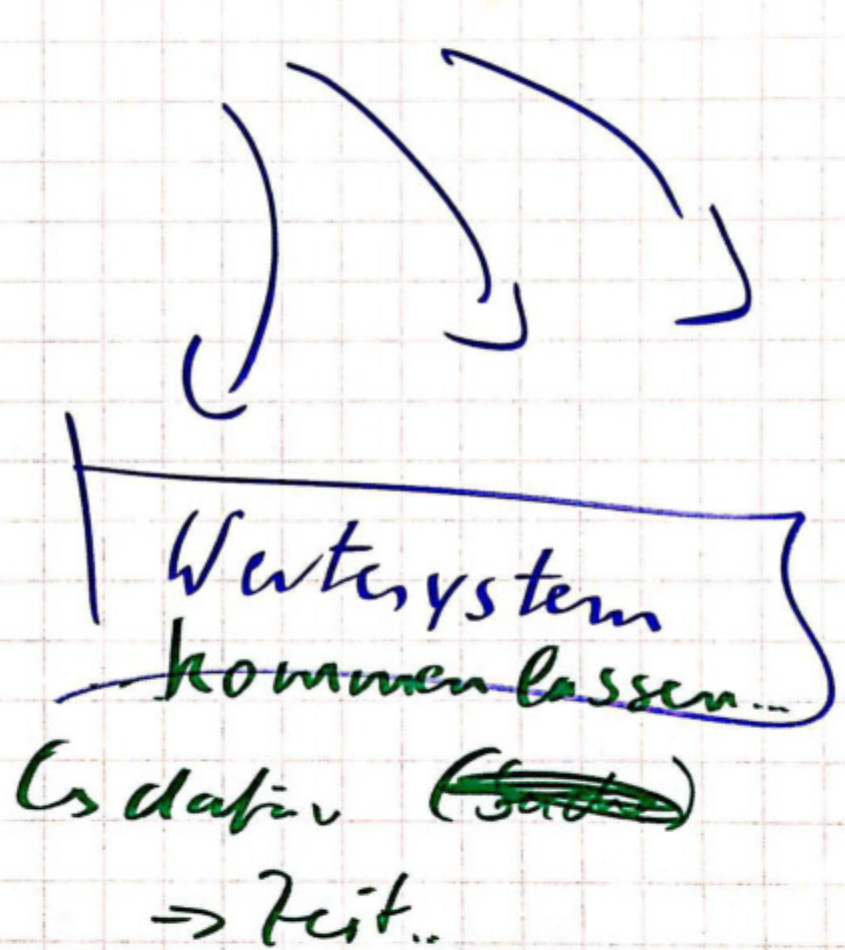 Wertesystem
kommen lassen...
↳ dafür (
⇒ Zeit..